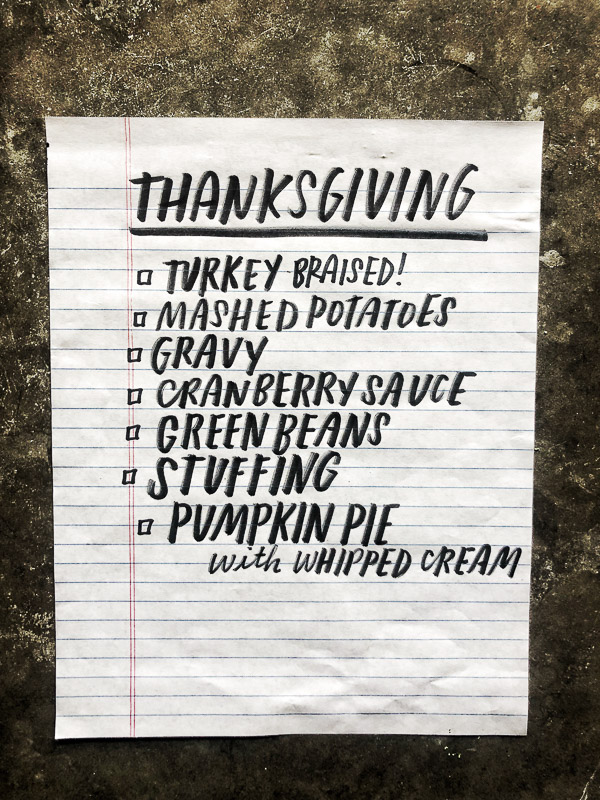 THANKSGIVING
TURKEY BRAISED!
MASHED POTATOES
GRAVY
CRANBERRY SAUCE
GREEN BEANS
STUFFING
PUMPKIN PIE
with WHIPPED CREAM